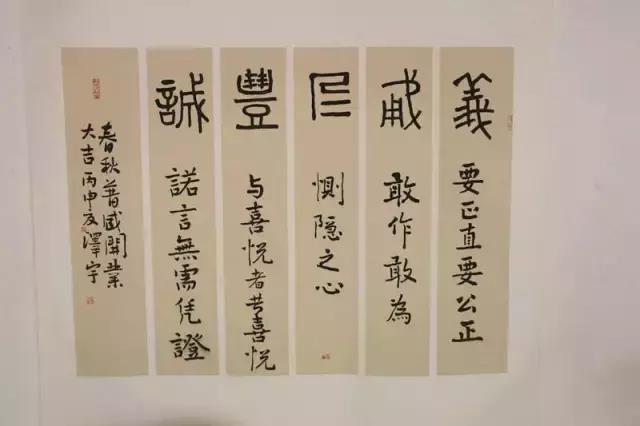 義
要正直要公正
勇
敢作敢為
仁
惻隐之心
豐
与喜悦者共喜悦
誠
諾言無需凭證
春秋普盛開業
大吉丙申夏澤宇